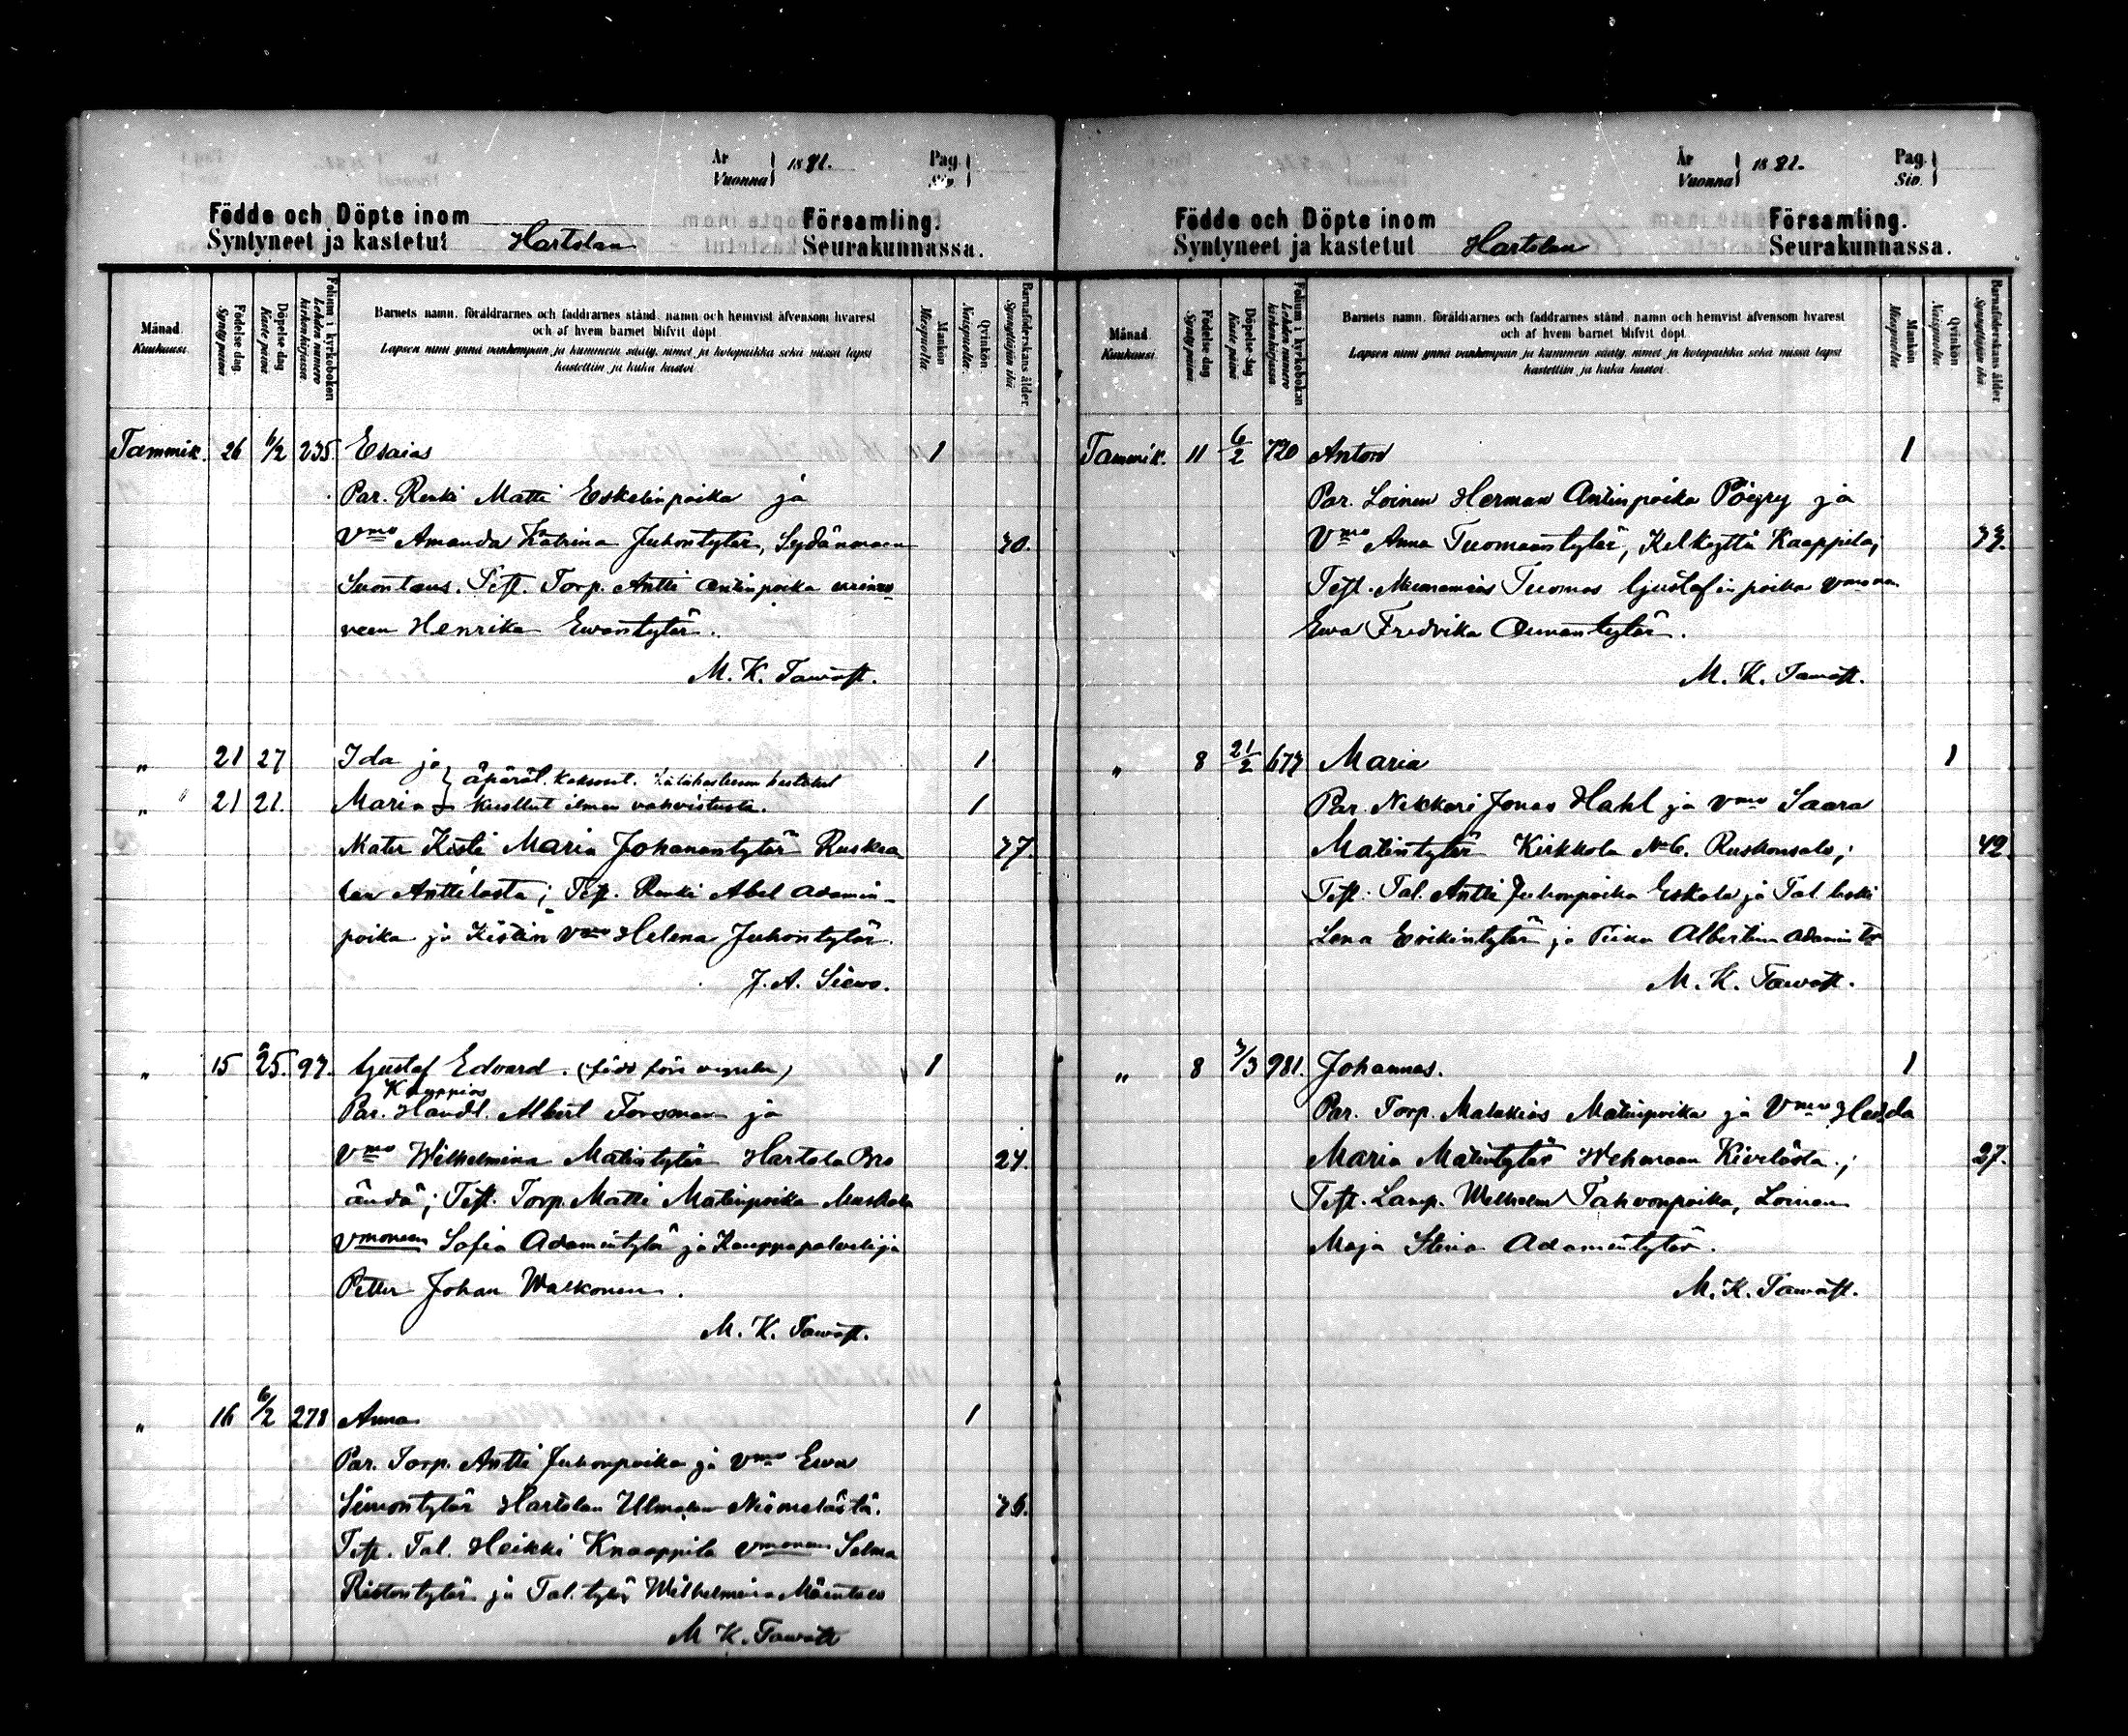 År
Vuonna } 1881.
Pag.
Siv.
Födde och Döpte inom Församling.
Syntyneet ja kastetut Hartolan Seurakunnassa.
Månad. Kuukausi.
Födelse dag. Syntypäivä
Döpelse dag Kaste päivä
Folium i kyrkoboken Lehden numero kirkonkirjassa
Barnets namn, föräldrarnes och faddrarnes stånd, namn och hemvist äfvensom hvarest
och af hvem barnet blifvit döpt.
Lapsen nimi ynnä vanhempain ja kummein sääty, nimet ja kotopaikka sekä missä lapsi
kastettiin ja kuka kastoi
Mankön Miespuolta
Qvinkön Naispuolta.
Barnaföderskans ålder. Synnyttäjän ikä
Tammik. 26 6/2 235. Esaias 1
Par. Renki Matti Eskelinpoika ja
Vmo Amanda Katrina Juhontytär, Sydänmaan 30.
Suontaus. Test. Torp. Antti Antinpoika
Henrika Ewantytär.
M. K. Tawast.
" 21 27 Ida ja 1
äpärät. kaksoset. hätäkasteen
" " 21 21. Maria kuollut ilman vahvistusta. 1
Mater Kisti Maria Johanantytär Ruskea 37.
lan Anttilasta; Test. Renki Abel Adamin-
poika ja Kistin Vmo Helena Juhontytär.
J. A. Siewo.
" 15 25. 97. Gustaf Edvard. (född före vigseln) 1
Kauppias
Par. Handl. Albert Forsman ja
Vmo Wilhelmina Matintytär Hartola 24.
Test. Torp. Matti Matinpoika Muskola
vmoneen Sofia Adamintytär ja Kauppapalvelija
Petter Johan Walkonen.
M. K. Tawast.
" 16 6/2 278 Anna 1
Par. Torp. Antti Juhonpoika ja Vmo Ewa
Simontytär Hartolan Ulmalan Niemelästä. 36.
Test. Tal. Heikki Knaappila vmoneen Selma
Ristontytär ja Tal. tytär Wilhelmina Mäentalo
M K. Tawast
År
Vuonna } 1881.
Pag.
Siv.
Födde och Döpte inom Församling.
Syntyneet ja kastetut Hartolan Seurakunnassa.
Månad. Kuukausi.
Födelse dag Syntypäivä
Döpelse dag Kaste päivä
Folium i kyrkoboken Lehden numero kirkonkirjassa
Barnets namn, föräldrarnes och faddrarnes stånd, namn och hemvist äfvensom hvarest
och af hvem barnet blifvit döpt.
Lapsen nimi ynnä vanhempain ja kummein sääty, nimet ja kotopaikka sekä missä lapsi
kastettiin ja kuka kastoi.
Mankön Miespuolta
Qvinkön Naispuolta
Barnaföderskans ålder Synnyttäjän ikä
Tammik. 11 6/2 720 Anton 1
Par. Loinen Herman Antinpoika Pöyry ja
Vmo Anna Tuomaantytär, Kelkyttä Kaappila; 33.
Test. Tuomas Gustafinpoika
Ewa Fredrika
M. K. Tawast.
" 8 21/2 673 Maria 1
Par. Nikkari Jonas Hahl ja vmo Saara
Matintytär Kirkkola No 6. Ruskonsalo; 42.
Test. Tal. Antti Juhonpoika Eskola ja Tal. leski
Lena Erikintytär ja Piika Albertina Adamintr
M. K. Tawast.
" 8 3/3 981. Johannes. 1
Par. Torp. Malakias Matinpoika ja Vmo Hedda
Maria Matintytär Wehmaan Kivelästä; 27.
Test. Lamp. Wilhelm Tahvonpoika, Loinen
Maja Stina Adamintytär.
M. K. Tawast.